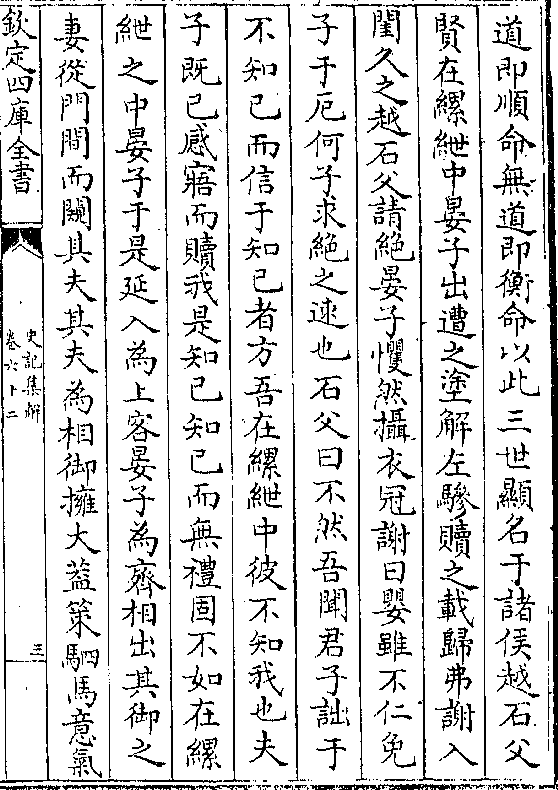 道即順命無道即衡命以此三世顯名于諸侯越石父
賢在縲紲中晏子出遭之塗解左驂贖之載歸弗謝入
閨久之越石父請絶晏子懼然攝衣冠謝曰嬰雖不仁免
子于厄何子求絶之速也石父曰不然吾聞君子詘于
不知已而信于知已者方吾在縲紲中彼不知我也夫
子既已感寤而贖我是知已知已而無禮固不如在縲
紲之中晏子于是延入為上客晏子為齊相出其御之
妻從門間而闚其夫其夫為相御擁大葢策駟馬意氣
欽定四庫全書
史記集解
卷六十二
三